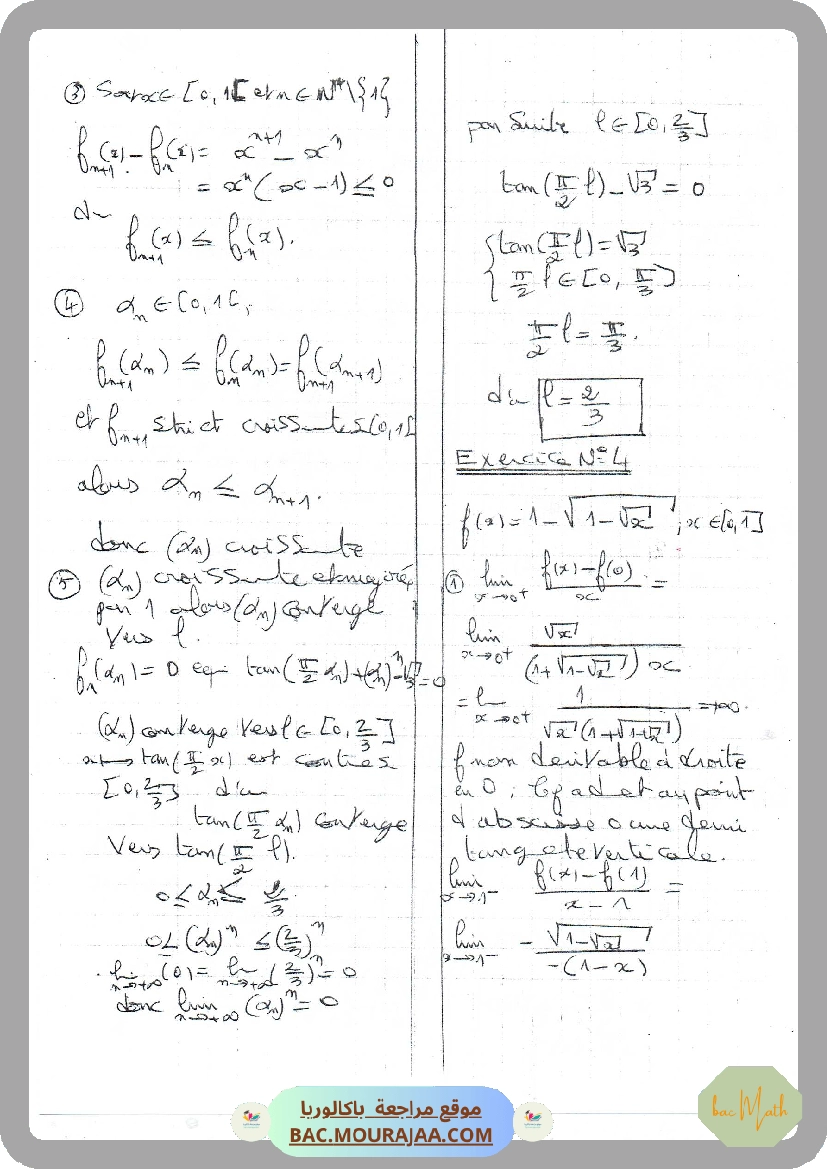 ③ Soit x ∈ [0,1[ et n ∈ ℕ* \ {1}
f_{n+1}(x) - f_n(x) = x^{n+1} - x^n
= x^n (x - 1) ≤ 0
d'où
f_{n+1}(x) ≤ f_n(x).
④ α_n ∈ [0,1[,
f_{n+1}(α_n) ≤ f_n(α_n) = f_{n+1}(α_{n+1})
et f_{n+1} strict croissante s [0,1[
alors α_n ≤ α_{n+1}.
donc (α_n) croissante
⑤ (α_n) croissante et majorée
par 1 alors (α_n) converge
vers l.
f_n(α_n) = 0 equi tan(π/2 α_n) + (α_n)^n - √3 = 0
(α_n) converge vers l ∈ [0, 2/3]
x ↦ tan(π/2 x) est conti s
[0, 2/3] d'où
tan(π/2 α_n) converge
vers tan(π/2 l).
0 ≤ α_n ≤ 2/3
0 ≤ (α_n)^n ≤ (2/3)^n
lim_{n→+∞} (0) = lim_{n→+∞} (2/3)^n = 0
donc lim_{n→+∞} (α_n)^n = 0
par suite l ∈ [0, 2/3]
tan(π/2 l) - √3 = 0
{ tan(π/2 l) = √3
π/2 l ∈ [0, π/3]
π/2 l = π/3.
d'où l = 2/3
Exercice N°4
f(x) = 1 - √(1 - √x) ; x ∈ [0,1]
① lim_{x→0+} (f(x) - f(0))/x =
lim_{x→0+} √x / ((1 + √(1 - √x)) x)
= lim_{x→0+} 1 / (√x (1 + √(1 - √x))) = +∞.
f non derivable à droite
en 0 ; Cf admet au point
d'abscisse 0 une demi
tangente verticale.
lim_{x→1-} (f(x) - f(1))/(x - 1) =
lim_{x→1-} -√(1 - √x) / -(1 - x)
موقع مراجعة باكالوريا
BAC.MOURAJAA.COM
bac Math